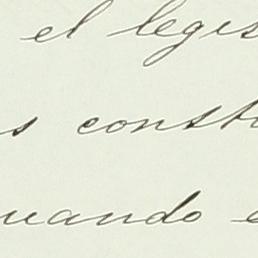 el legis
s consti
uando e